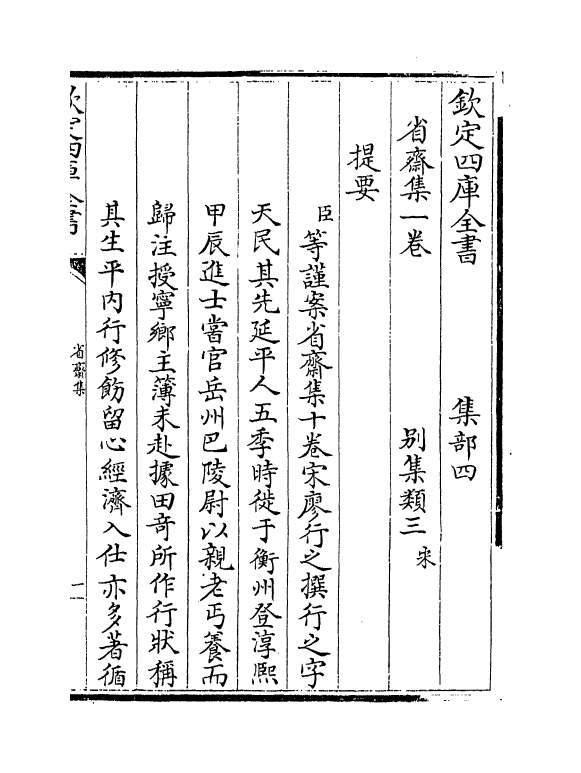 欽定四庫全書　集部四
省齋集一卷　別集類三宋
提要
臣等謹案省齋集十卷宋廖行之撰行之字
天民其先延平人五季時徙于衡州登淳熙
甲辰進士嘗官岳州巴陵尉以親老丐養而
歸注授寧鄉主簿未赴據田竒所作行狀稱
其生平内行修飭留心經濟入仕亦多著循
欽定四庫全書
省齋集
一